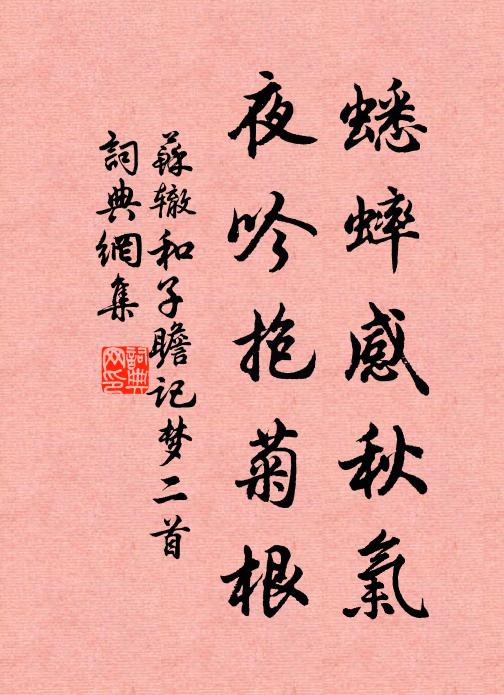 蟋蟀感秋氣
夜吟抱菊根
蘇辙和子瞻记梦二首
詞典網集
詞典網印